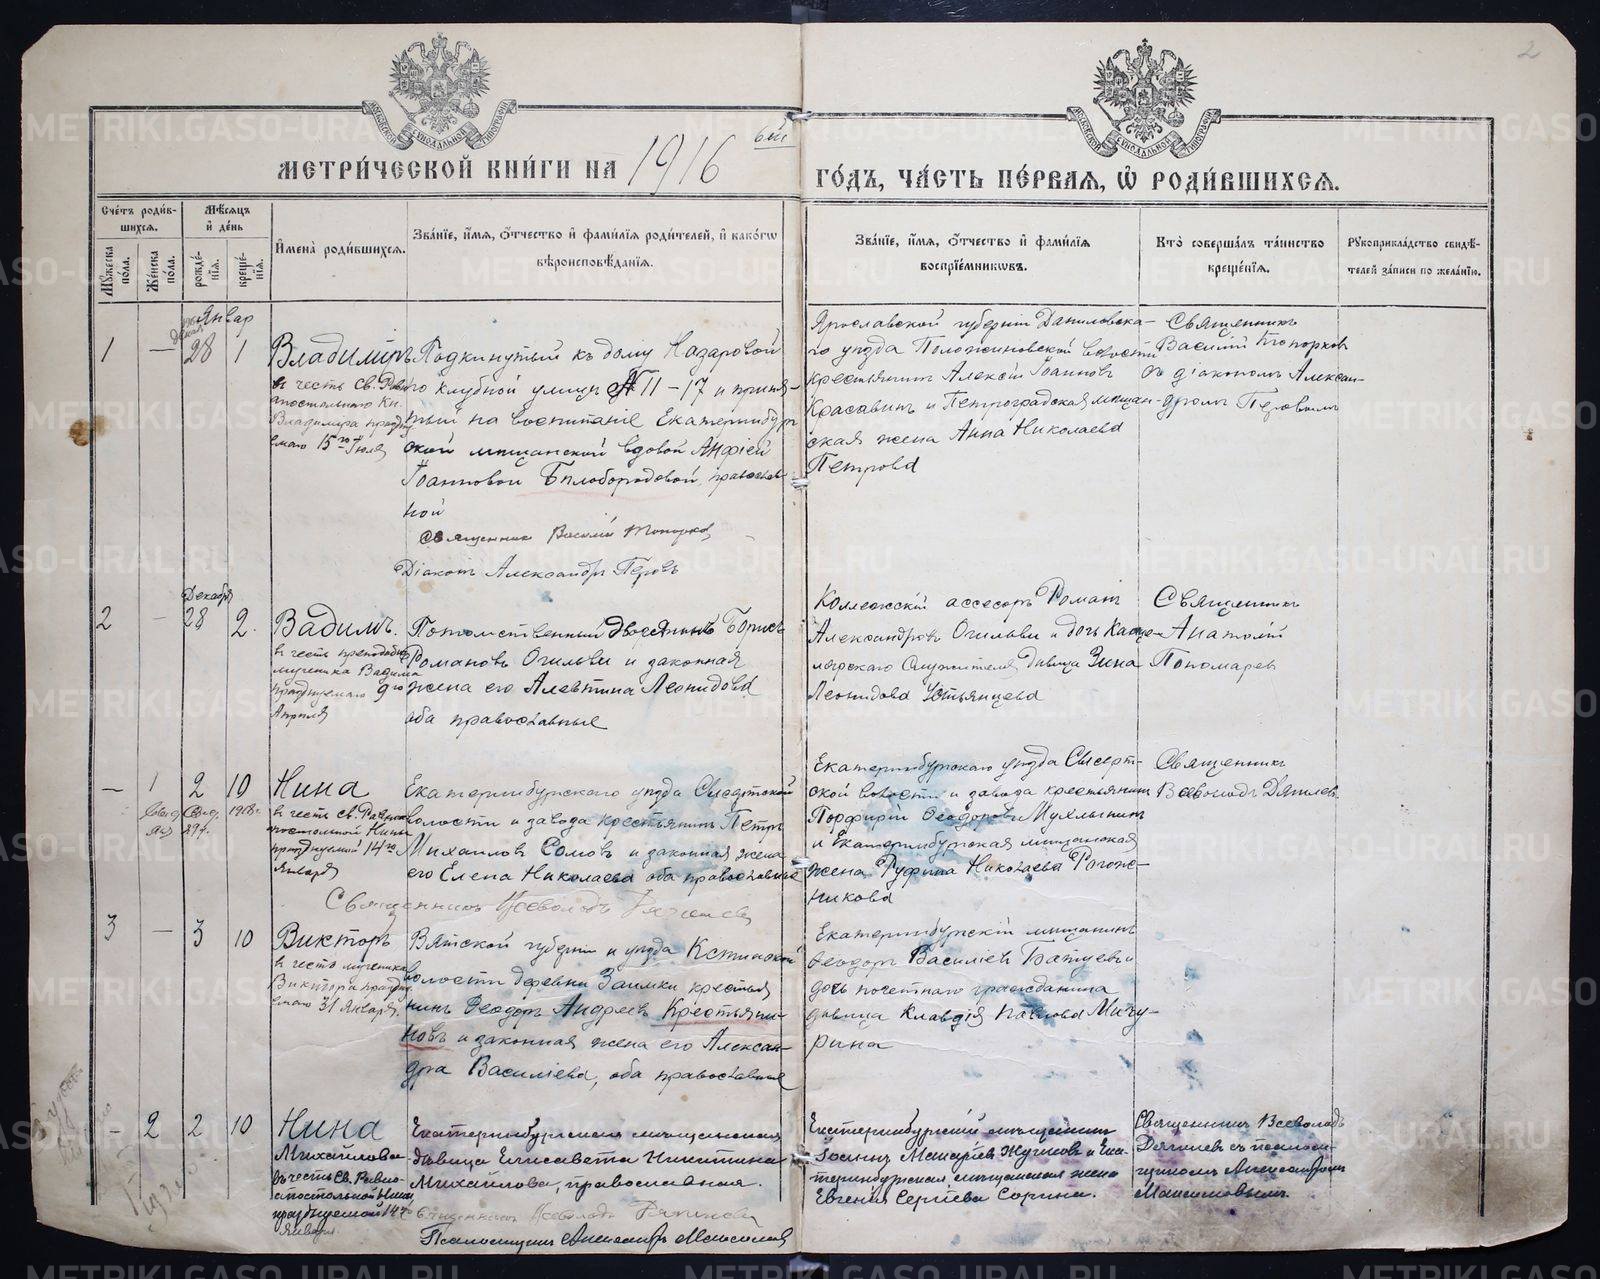 2
МЕТРИ́ЧЕСКОЙ КНИ́ГИ НА 1916 ый
ГО́ДЪ, ЧА́СТЬ ПЕ́РВАЯ, Ѡ РОДИ́ВШИХСЯ.
Сче́тъ роди́в-
шихся.
Мѣ́сяцъ
и҆ де́нь
Мꙋ́жеска по́ла.
Же́нска по́ла.
рожде́нїя.
креще́нїя.
И҆мена̀ роди́вшихся.
Зва́нїе, и҆́мя, ѻ҆́тчество и҆ фами́лїя роди́телей, и҆ како́гѡ
вѣроисповѣ́данїя.
Зва́нїе, и҆́мя, ѻ҆́тчество и҆ фами́лїя
воспрїе́мникѡвъ.
Кто̀ соверша́лъ та́инство
креще́нїя.
Рꙋкоприкла́дство свидѣ́-
телей за́писи по жела́нїю.
Январ
1 — 28 1
Владиміръ
въ честь св. Рав-
апостольнаго Кн.
Владиміра праздну
емаго 15го Іюля
Подкинутый къ дому Назаровой
по клубной улицѣ № 11–17 и приня-
тый на воспитаніе Екатеринбург
ской мѣщанской вдовой Анфіей
Іоанновой Бѣлобородовой, православ
ной
Священник Василій Топорков
Діаконъ Александръ Перовъ
Ярославской губерніи Даниловска-
го уѣзда Положиновской волости
крестьянинъ Алексій Іоанновъ
Красавинъ и Петроградская мѣщан-
ская жена Анна Николаева
Петрова
Священникъ
Василій Топорков
съ діакономъ Алексан-
дромъ Перовымъ
Декабря
2 — 28 2.
Вадимъ.
въ честь преподобно
мученика Вадима
празднуемаго 9го
Апрѣля
Потомственный Дворянинъ Борисъ
Романовъ Огильви и законная
жена его Алевтина Леонидова
оба православные
Коллежскій ассесоръ Романъ
Александровъ Огильви и дочь Канце-
лярскаго Служителя дѣвица Зина
Леонидова Устьянцева
Священникъ
Анатолій
Пономарев
— 1 2 10
1918г.
Нина
въ честь св. Равноа
постольной Нины
празднуемой 14го
Января
Екатеринбургскаго уѣзда Сысертской
волости и завода крестьянинъ Петръ
Михаиловъ Сомовъ и законная жена
его Елена Николаева оба православные
Священникъ Всеволодъ Дягилевъ
Екатеринбургскаго уѣзда Сысерт-
ской волости и завода крестьянинъ
Порфирій Ѳеодоровъ Мухлынинъ
и Екатеринбургская мѣщанская
жена Руфина Николаева Рогож-
никова
Священникъ
Всеволодъ Дягилев
3 — 3 10
Викторъ
въ честь мученика
Виктора праздну
емаго 31 Января.
Вятской губерніи и уѣзда Кстининской
волости деревни Заимки крестья
нинъ Ѳеодоръ Андреевъ Крестьяни-
новъ и законная жена его Алексан-
дра Василіева, оба православные
Екатеринбургскій мѣщанинъ
Ѳеодоръ Василіевъ Батуевъ и
дочь почетнаго гражданина
дѣвица Клавдія Павлова Мичу-
рина
— 2 2 10
Нина
Михайлова
въ честь Св. Равно-
апостольной Нины,
празднуемой 14го
Января
Екатеринбургская мѣщанская
дѣвица Елисавета Никитина
Михайлова, православная.
Священникъ Всеволодъ Дягилевъ
Псаломщикъ Александръ Максимов
Екатеринбургскій мѣщанинъ
Іоаннъ Макаріев Жучков и Ека-
теринбургская мѣщанская жена
Евгенія Сергіева Сорина.
Священникъ Всеволодъ
Дягилевъ съ псалом-
щикомъ Александромъ
Максимовымъ.